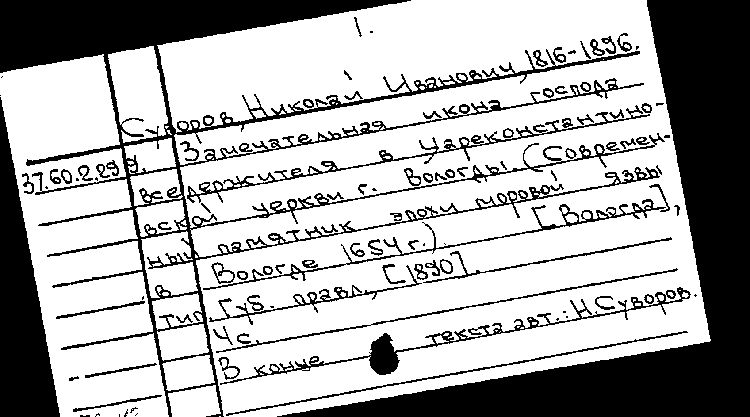 1.
Суворов, Николай Иванович, 1816-1896.
37.60.2.299. Замечательная икона господа
вседержителя в Цареконстантино-
вской церкви г. Вологды. (Современ-
ный памятник эпохи моровой язвы
в Вологде 1654 г.) [Вологда],
тип. Губ. правл., [1890].
4 с.
В конце текста авт.: Н. Суворов.